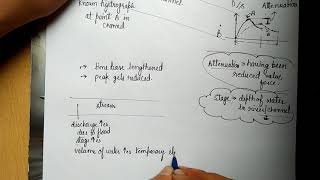 known hydrograph
at point A in
channel
D/s
Attenuation
A
→ time base lengthened
→ peak gets reduced.
Attenuation → having been
reduced value,
force.
Stage → depth of water
in river/channel
stream
discharge ↑es
due to flood
stage ↑es
volume of water ↑es temporary